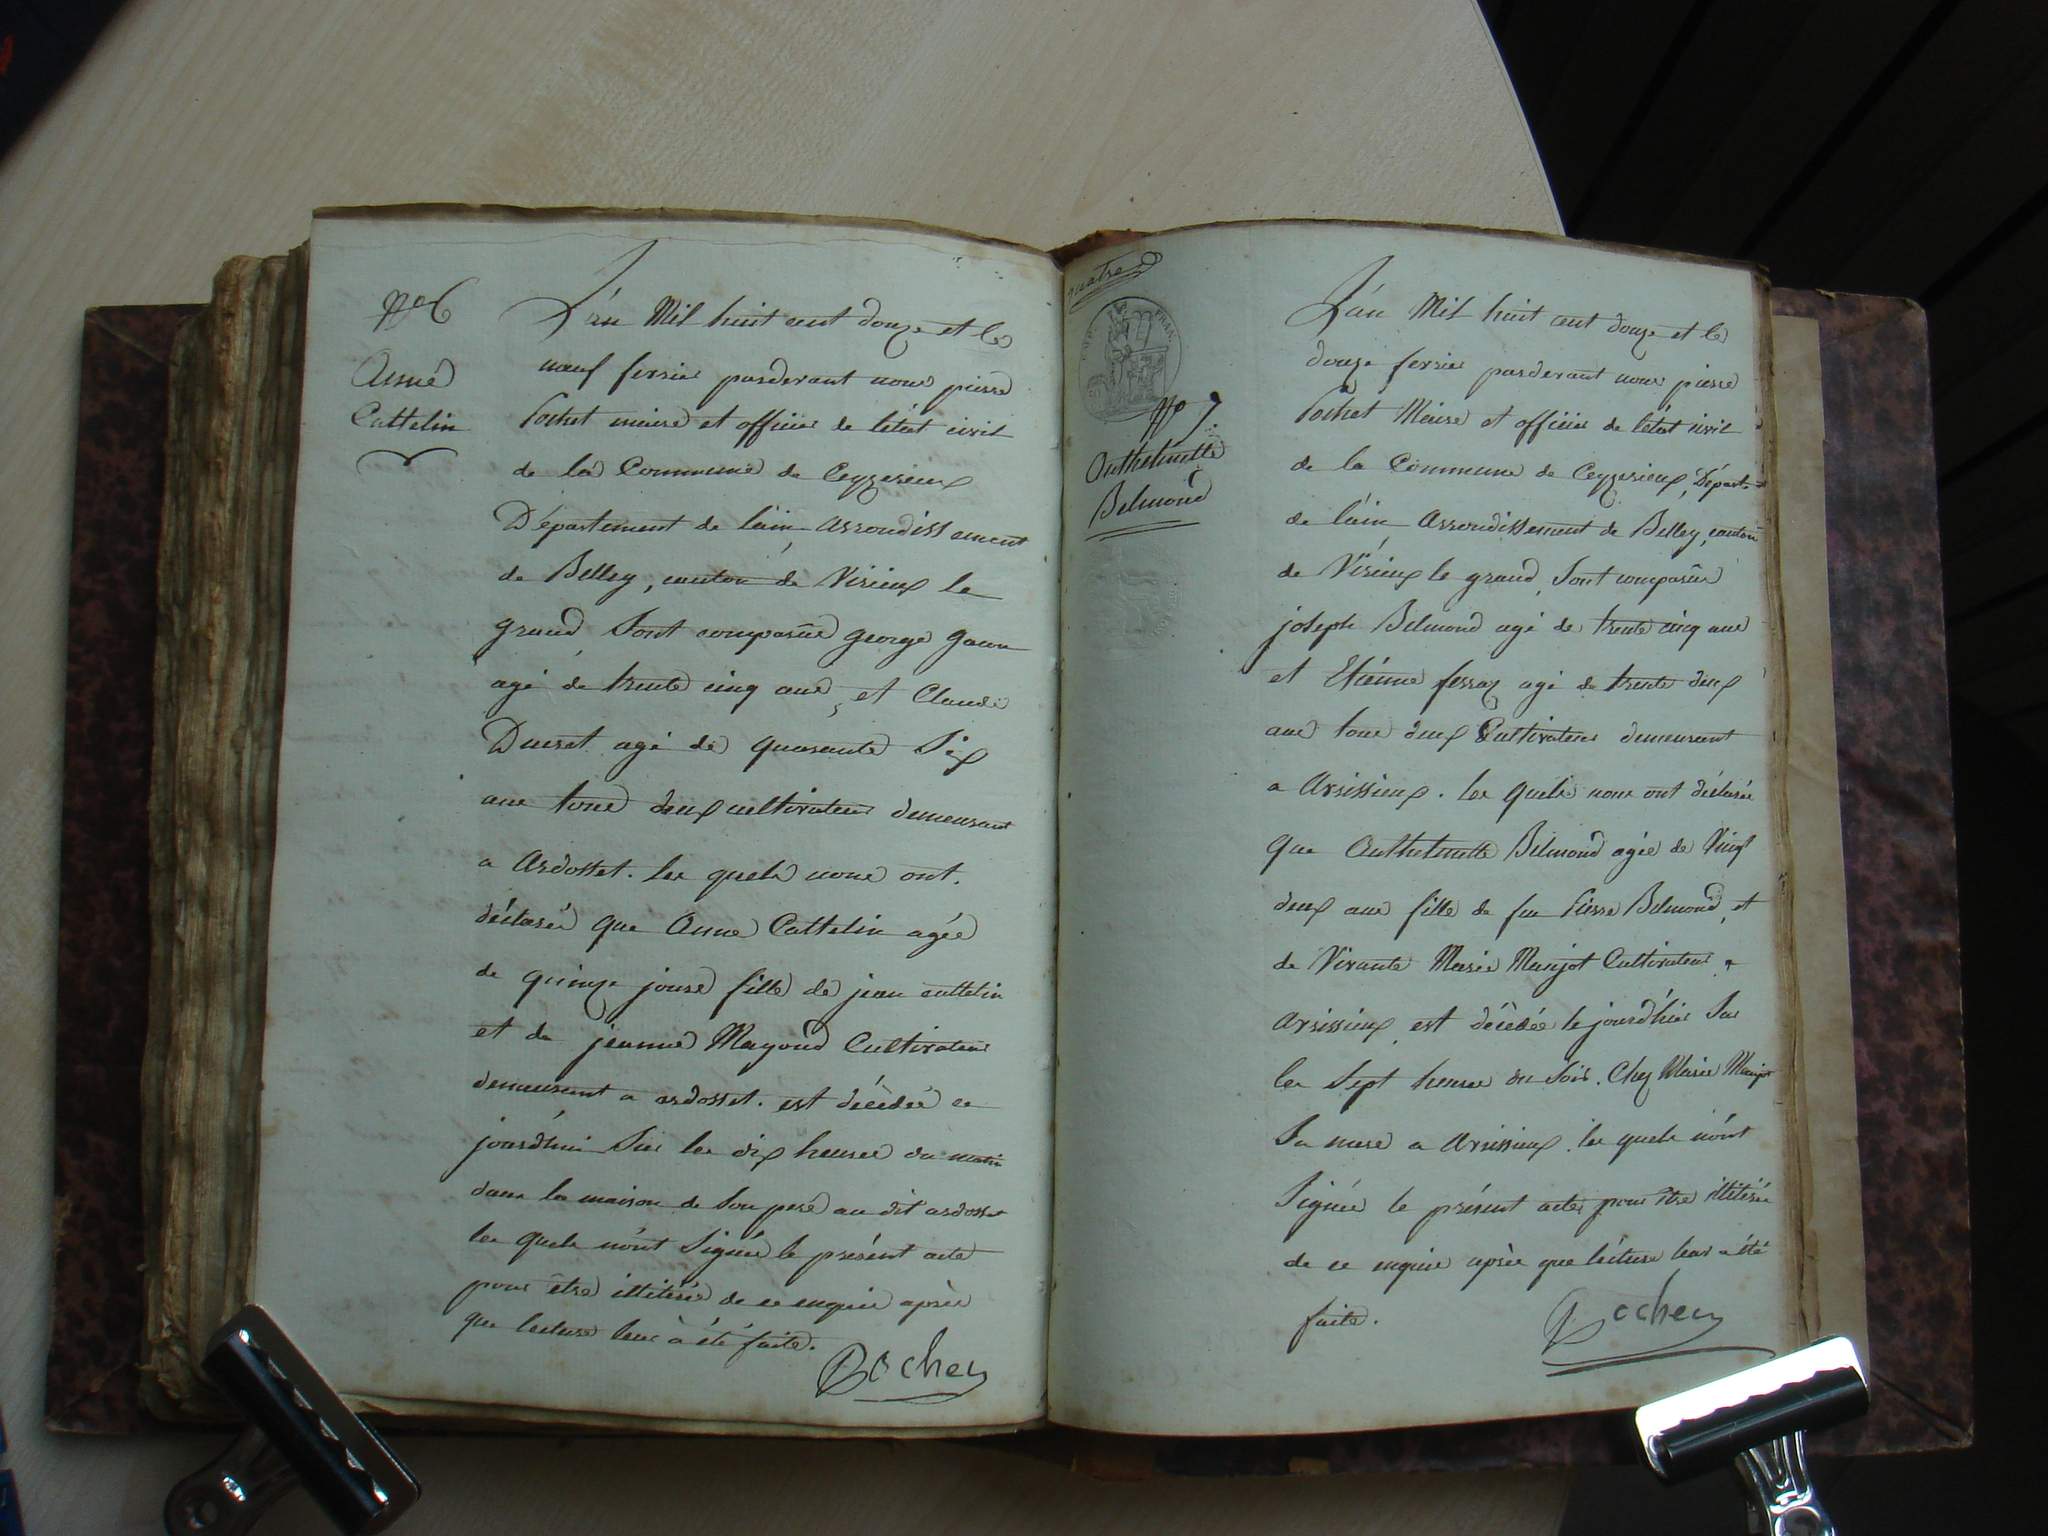 N° 6
Anne
Cattelin
L'án Mil huit cent douze et le
neuf fevrier pardevant nous pierre
Pochet maire et officier de létat civil
de la Commune de Ceyzerieux
Département de láin, arrondissement
de Belley, canton de Virieux le
grand, Sont comparûs george
agé de trente cinq ans, et Claude
Ducret agé de quarante Six
ans tous deux cultivateurs demeurant
a ardosset. les quels nous ont.
déclaré que Anne Cattelin agée
de quinze jours fille de jean cattelin
et de jeanne Mayoud Cultivateurs
demeurant a ardosset. est décèdée ce
jourd'hui Sur les dix heures du matin
dans la maison de Son pere au dit ardosset
les quels n'ont Signés le présent acte
pour être illitérés de ce enquis après
que lecture leur à été faite.
Pochet
quatre
EMP. FRAN.
N° 7.
Anthelmette
Belmond
L'án Mil huit cent douze et le
douze fevrier pardevant nous pierre
Pochet Maire et officier de létat civil
de la Commune de Ceyzerieux, Départ.
de láin, arrondissement de Belley, canton
de Virieux le grand, Sont comparûs
joseph Belmond agé de trente cinq ans
et Etiénne ferraz agé de trente deux
ans tous deux Cultivateurs demeurant
a Avrissieux. les quels nous ont déclarés
que Anthelmette Belmond agée de Vingt
deux ans fille de feu Pierre Belmond, et
de Vivante Marie Manjot Cultivateurs a
Avrissieux, est décèdée le jourd'hier Sur
les Sept heures du Soir. Chez Marie Manjot
Sa mere a Avrissieux. les quels n'ont
Signés le présent acte, pour être illitérés
de ce enquis après que lécture leur a été
faite.
Pochet